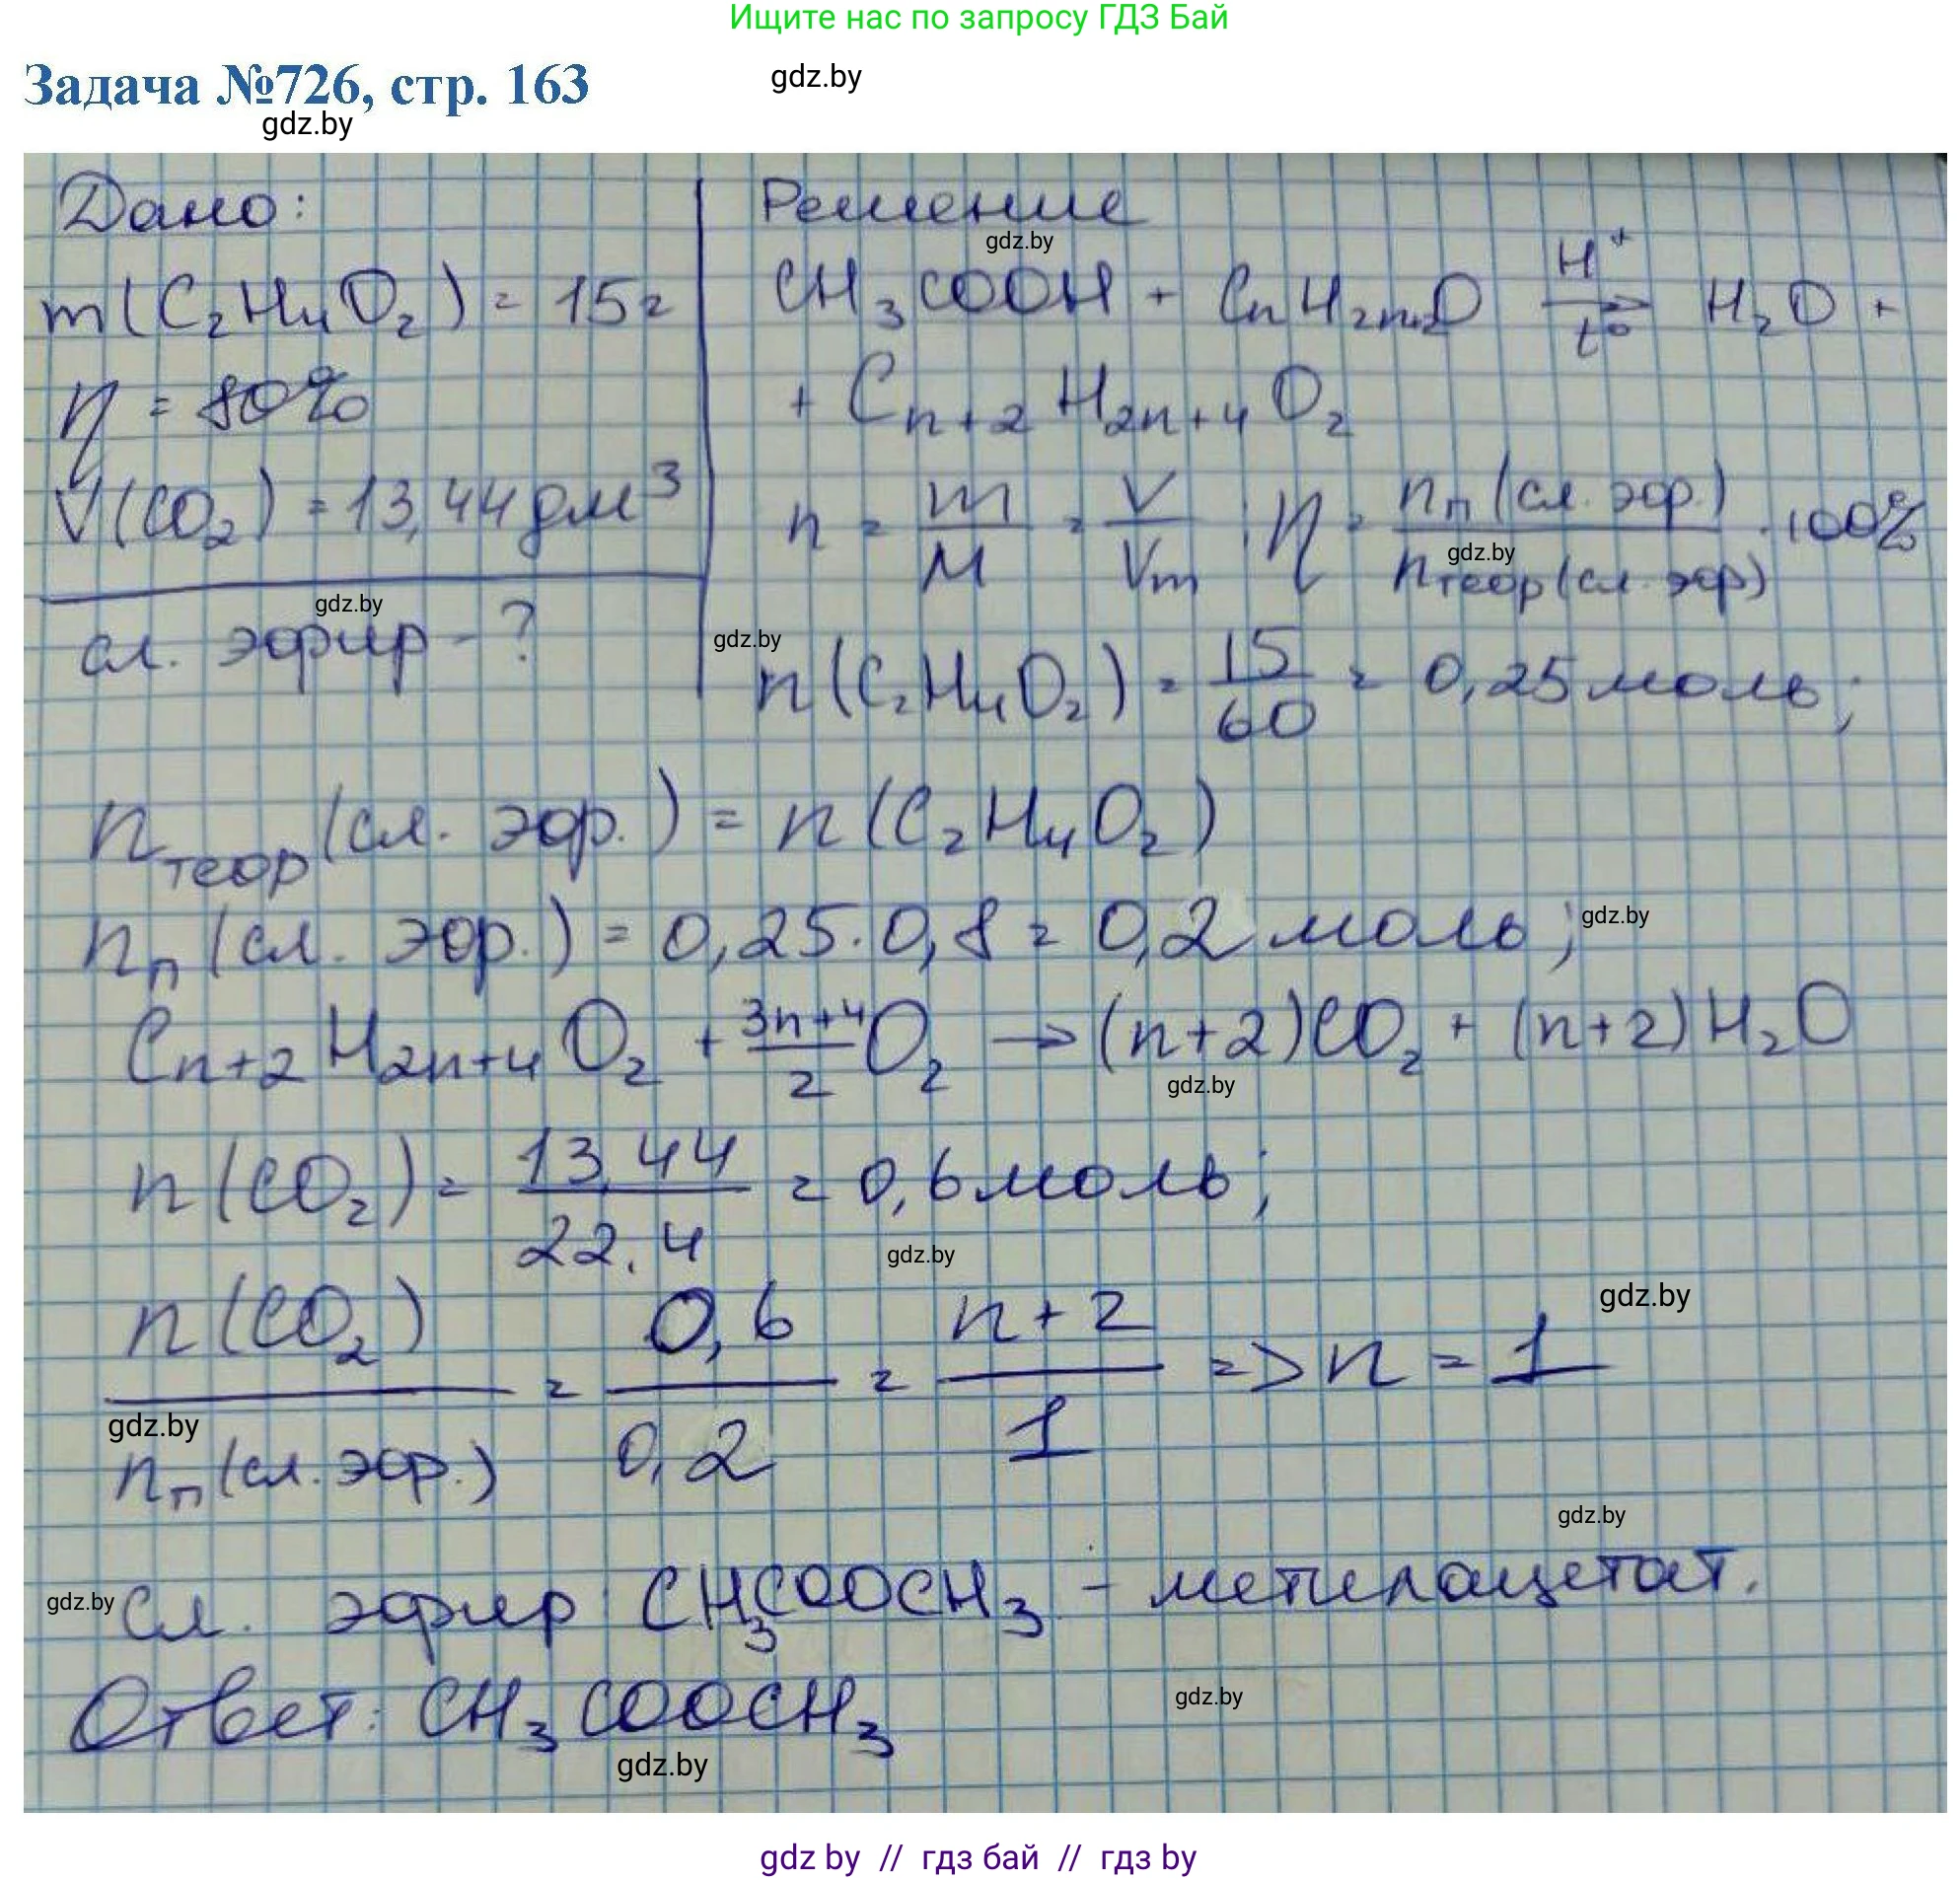 Ищите нас по запросу ГДЗ Бай
Задача №726, стр. 163
gdz.by
gdz.by
Дано:
m(C₂H₄O₂) = 15г
η = 80%
V(CO₂) = 13,44 дм³
gdz.by
сл. эфир - ?
Решение
gdz.by
CH₃COOH + CₙH₂ₙ₊₂O →(H⁺, t°) H₂O +
+ Cₙ₊₂H₂ₙ₊₄O₂
n = m/M = V/Vm ; η = nп(сл. эфр.)/nтеор(сл. эфр) · 100%
gdz.by
gdz.by
n(C₂H₄O₂) = 15/60 = 0,25 моль;
nтеор(сл. эфр.) = n(C₂H₄O₂)
nп(сл. эфр.) = 0,25 · 0,8 = 0,2 моль;
gdz.by
Cₙ₊₂H₂ₙ₊₄O₂ + (3n+4)/2 O₂ → (n+2)CO₂ + (n+2)H₂O
gdz.by
n(CO₂) = 13,44/22,4 = 0,6 моль;
gdz.by
n(CO₂)/nп(сл. эфр.) = 0,6/0,2 = (n+2)/1 => n = 1
gdz.by
gdz.by
gdz.by
gdz.by
Сл. эфир: CH₃COOCH₃ - метилацетат.
Ответ: CH₃COOCH₃
gdz.by
gdz.by
gdz by // гдз бай // гдз by